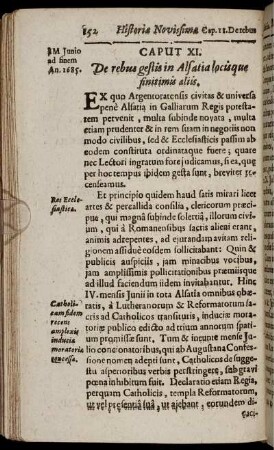 152 Historiæ Novissimæ Cap. 11. De rebus
CAPUT XI.
De rebus gestis in Alsatia locisque
finitimis aliis.
à M Junio
ad finem
An. 1685.
EX quo Argentoratensis civitas & universa
penè Alsatia in Galliarum Regis potesta-
tem pervenit, multa subinde novata, multa
etiam prudenter & in rem suam in negotiis non
modo civilibus, sed & Ecclesiasticis passim ab
eodem constituta ordinataque fuere; quare
nec Lectori ingratum fore judicamus, si ea, quæ
per hoc tempus ibidem gesta sunt, breviter re-
censeamus.
Res Eccle-
siasticæ.
Et principio quidem haud satis mirari licet
artes & percallida consilia, clericorum præci-
pue, qui magnâ subinde solertiâ, illorum civi-
um, qui à Romanensibus sactis alieni erant,
animis adrepentes, ad ejurandum avitam reli-
gionem assiduè eosdem sollicitabant: Quin &
publicis auspiciis, jam minacibus vocibus,
jam amplissimis pollicitationibus præmiisque
ad illud faciendum iidem invitabantur. Hinc
IV. mensis Junii in tota Alsatia omnibus obæ-
ratis, à Lutheranorum & Reformatorum sa-
cris ad Catholicos transituris, induciæ mora-
toriæ publico edicto ad trium annorum spati-
um promissæ sunt. Tum & ineunte mense Ju-
lio concionatoribus, qui ab Augustana Confes-
sione nomen adepti sunt, Catholicos de sugge-
stu asperioribus verbis perstringere, sub gravi
pœna inhibitum fuit. Declaratio etiam Regia,
perquam Catholicis, templa Reformatorum,
ut vel præsentiâ suâ, ut ajebant, eorundem di-
Catholi-
cam fidem
recens
amplexis
induciæ
moratoriæ
concessæ.